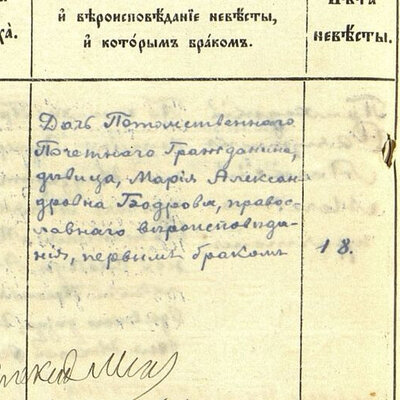 и҆ вѣроисповѣданїе невѣсты,
и҆ кото́рымъ бра́комъ.
невѣ́сты.
ха̀.
Дочь Потомственнаго
Почетнаго Гражданина,
дѣвица, Марія Алексан-
дровна Бодрова, правос-
лавнаго вѣроисповѣда-
нія, первымъ бракомъ
18.